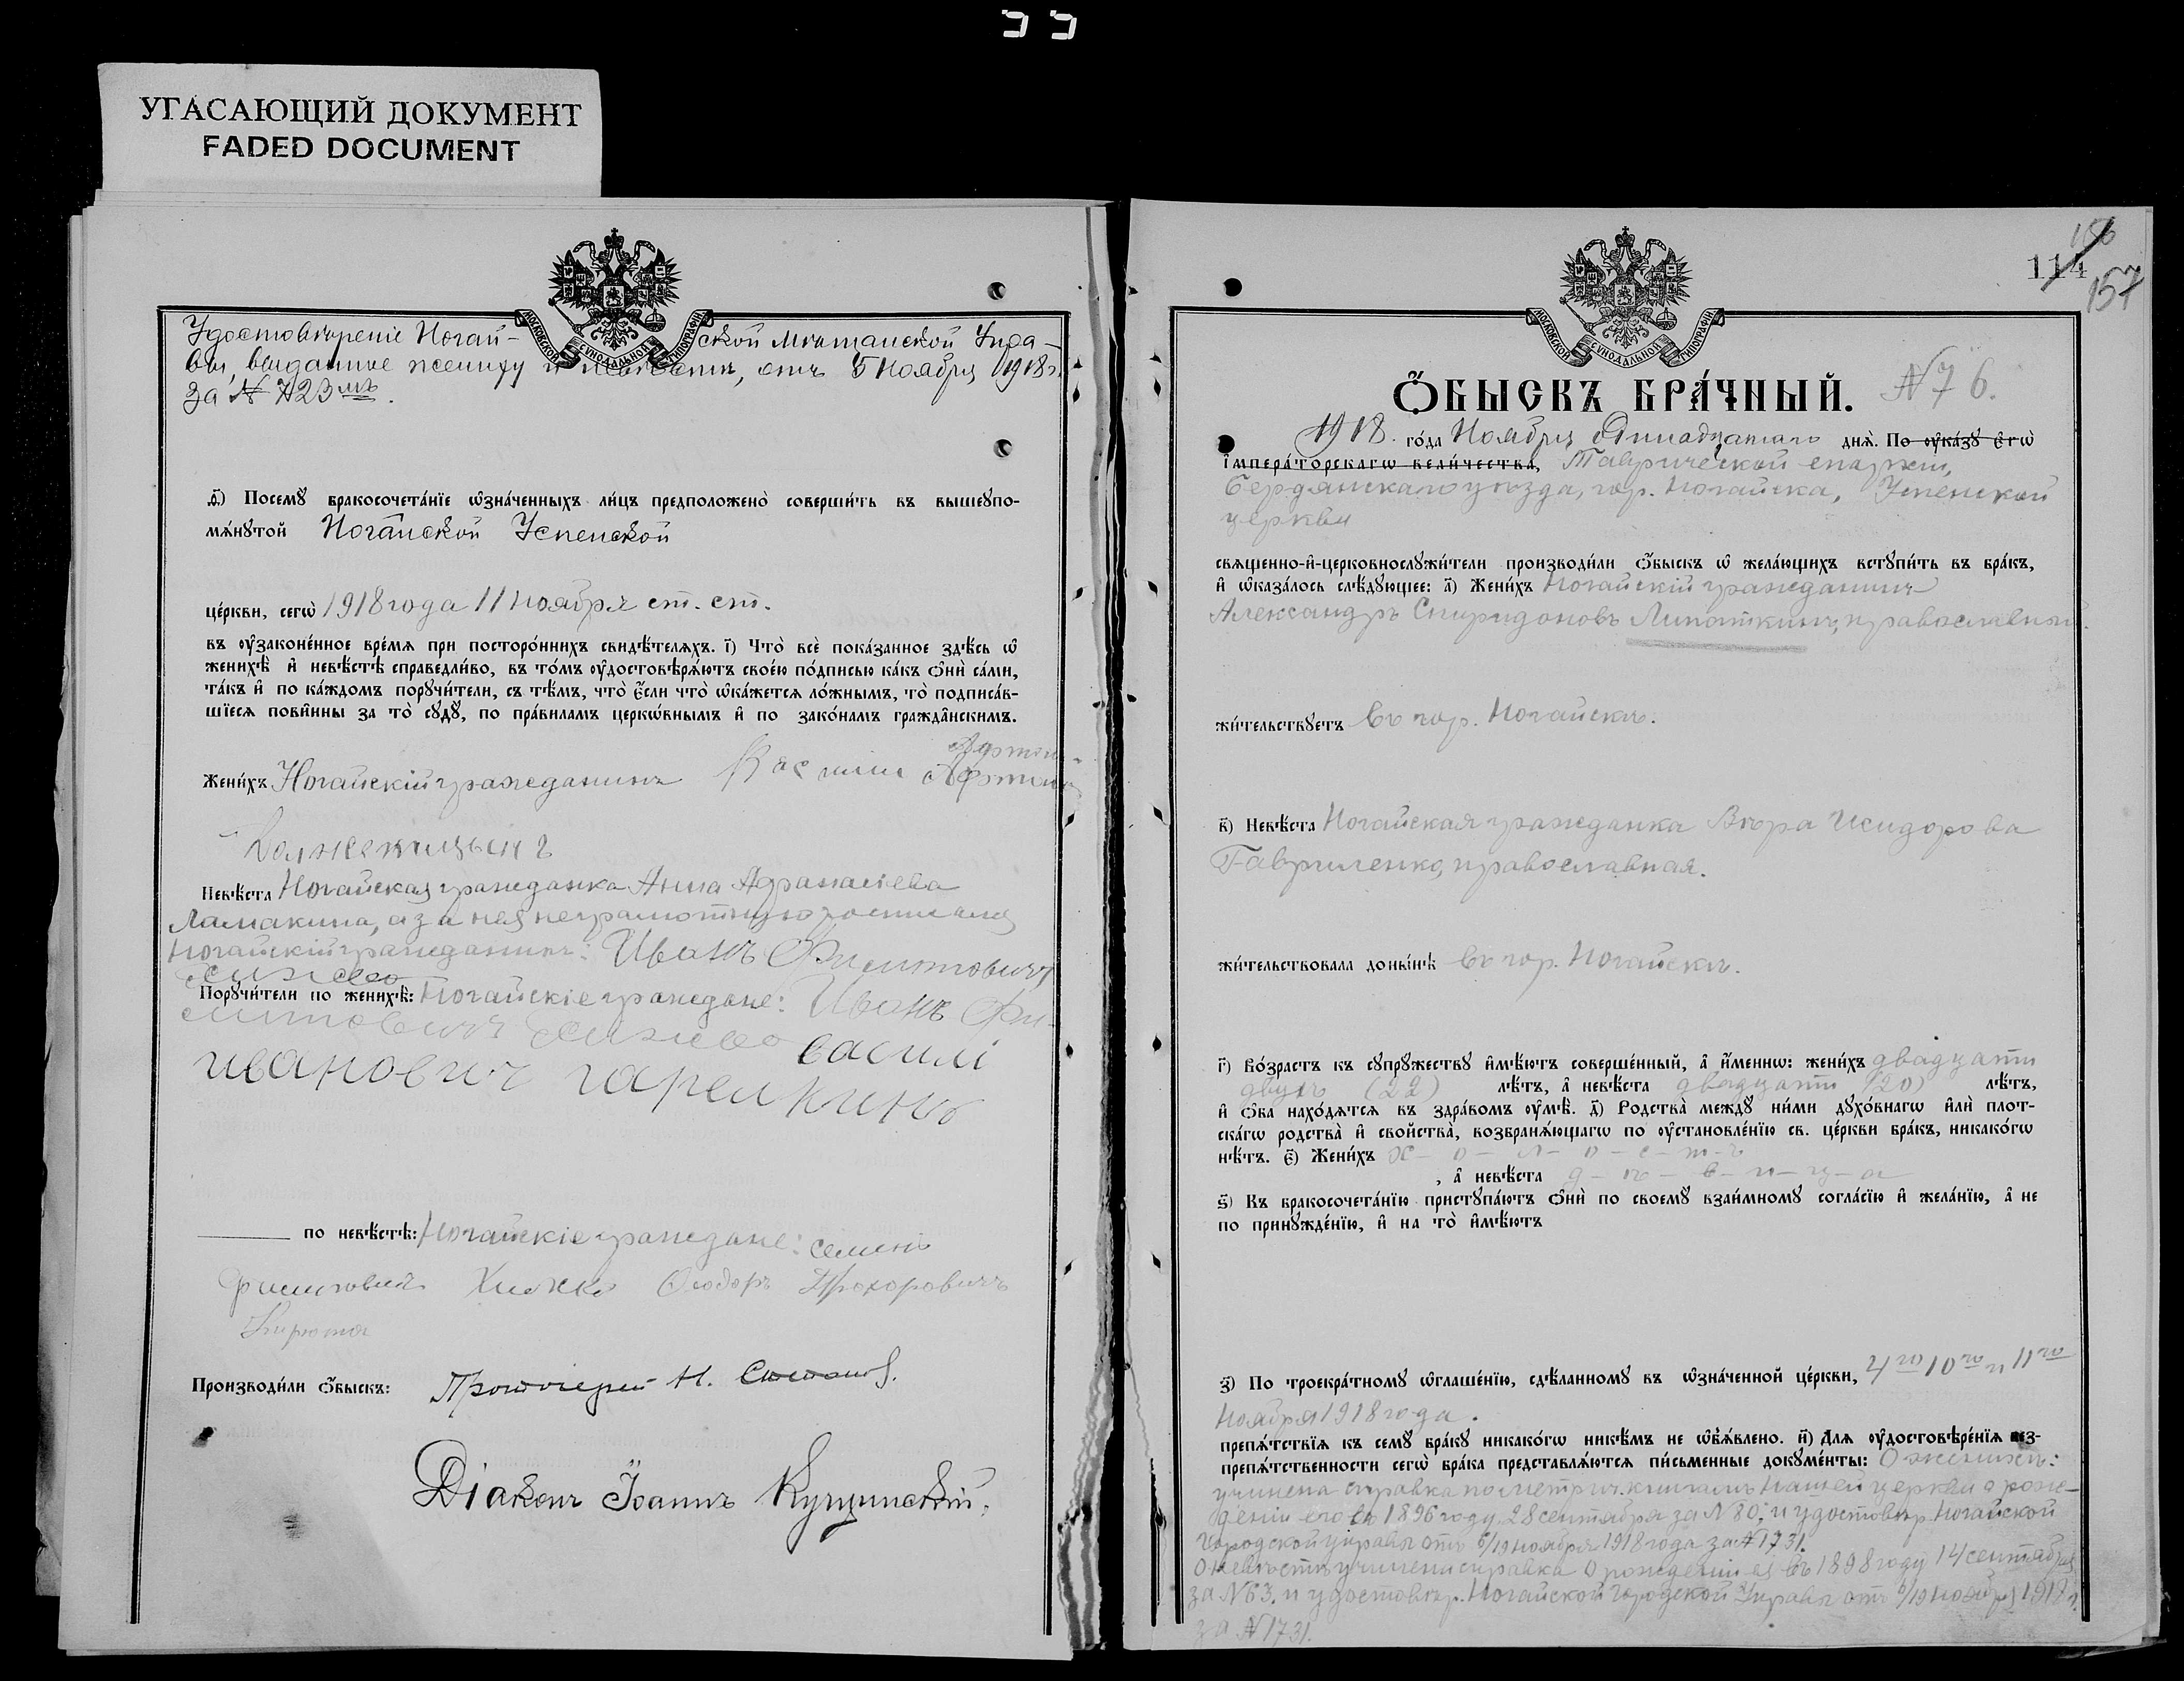 УГАСАЮЩИЙ ДОКУМЕНТ
FADED DOCUMENT
МОСКОВСКОЙ СѴНОДАЛЬНОЙ ТИПОГРАФІИ
Удостовѣреніе Ногай-ской Мѣщанской Упра-
вы, выданное жениху и невѣстѣ, отъ 5 Ноября 1918 г.
за № 723мъ.
ѳ҃) Посемꙋ бракосочета́нїе ѡ҆зна́ченныхъ ли́цъ предположено̀ соверши́ть въ вышеꙋпо-
мѧ́нꙋтой Ногайской Успенской
це́ркви, сегѡ̀ 1918 года 11 ноября ст. ст.
въ ᲂу҆зако́ненное вре́мѧ при посторо́ннихъ свидѣ́телѧхъ. і҃) Что̀ всѐ пока́занное здѣ́сь ѡ҆
женихѣ̀ и҆ невѣ́стѣ справедли́во, въ то́мъ ᲂу҆достовѣрѧ́ютъ свое́ю по́дписью ка́къ ѻ҆нѝ са́ми,
та́къ и҆ по ка́ждомъ порꙋчи́тели, съ тѣ́мъ, что̀ є҆́сли что̀ ѡ҆ка́жетсѧ ло́жнымъ, то̀ подписа́в-
шїесѧ пови́нны за то̀ сꙋдꙋ̀, по пра́виламъ церкѡ́внымъ и҆ по зако́намъ гражда̂нскимъ.
Жени́хъ Ногайскій гражданинъ
Невѣ́ста Ногайская гражданка Анна Афранасіева
Ламакина, а за нея неграмотную росписался
Ногайскій гражданинъ: Иванъ Филиповичъ
Порꙋчи́тели по женихѣ̀: Ногайскіе граждане: Иванъ Фи-
липовичъ Василі
Ивановичъ гарелкинъ
по невѣ́стѣ: Ногайскіе граждане: Семенъ
Филиповичъ Хижко Ѳеодоръ Прохоровичъ
Кирюта
Производи́ли ѻ҆́быскъ: Протоіерей Н.
Діаконъ Іоаннъ
114
157
МОСКОВСКОЙ СѴНОДАЛЬНОЙ ТИПОГРАФІИ
Ѻ҆́БЫСКЪ БРА́ЧНЫЙ. №76.
1918. го́да Ноября Одинадцатаго днѧ̀. По ᲂу҆ка́зꙋ є҆гѡ̀
і҆мпера́торскагѡ вели́чества, Таврической епархіи,
Бердянскаго уѣзда, гор. Ногайска, Успенской
церкви
свѧщенно-и҆-церковнослꙋжи́тели производи́ли ѻ҆́быскъ ѡ҆ жела́ющихъ встꙋпи́ть въ бра́къ,
и҆ ѡ҆каза́лось слѣ́дꙋющее: а҃) Жени́хъ Ногайскій гражданинъ
Александръ Спиридоновъ Липоткинъ, православный.
жи́тельствꙋетъ въ гор. Ногайскѣ.
в҃) Невѣ́ста Ногайская гражданка Вѣра Исидорова
Гавриленко, православная.
жи́тельствовала доны́нѣ въ гор. Ногайскѣ.
г҃) Во́зрастъ къ сꙋпрꙋ́жествꙋ и҆мѣ́ютъ соверше́нный, а҆ и҆́меннѡ: жени́хъ двадцати
двухъ (22) лѣ́тъ, а҆ невѣ́ста двадцати (20) лѣ́тъ,
и҆ ѻ҆́ба нахо́дѧтсѧ въ здра́вомъ ᲂу҆мѣ̀. д҃) Родства̀ междꙋ̀ ни́ми дꙋхо́внагѡ и҆лѝ плот-
ска́гѡ родства̀ и҆ свойства̀, возбранѧ́ющагѡ по ᲂу҆становле́нїю св. це́ркви бра́къ, никако́гѡ
нѣ́тъ. є҃) Жени́хъ х-о-л-о-с-т-ъ
, а҆ невѣ́ста д-ѣ-в-и-ц-а
ѕ҃) Къ бракосочета́нїю пристꙋпа́ютъ ѻ҆нѝ по своемꙋ̀ взаи́мномꙋ согла́сїю и҆ жела́нїю, а҆ не
по принꙋжде́нїю, и҆ на то̀ и҆мѣ́ютъ
з҃) По троекра́тномꙋ ѡ҆глаше́нїю, сдѣ́ланномꙋ въ ѡ҆зна́ченной це́ркви, 4го 10го и 11го
Ноября 1918 года.
препѧ́тствїѧ къ семꙋ̀ бра́кꙋ никако́гѡ никѣ́мъ не ѡ҆б̾ѧ́влено. и҃) Длѧ ᲂу҆достовѣре́нїѧ без-
препѧ́тственности сегѡ̀ бра́ка представлѧ́ютсѧ пи́сьменные докꙋме́нты: О женихѣ:
учинена справка по метрич. книгамъ нашей церкви о рож-
деніи его въ 1896 году 28 сентября за №80, и удостовѣр. Ногайской
Городской управы отъ 6/19 ноября 1918 года за №1731.
О невѣстѣ учинена справка о рожденіи ея въ 1898 году 14 сентября
за №63. и удостовѣр. Ногайской Городской Управы отъ 6/19 ноября 1918 г.
за №1731.